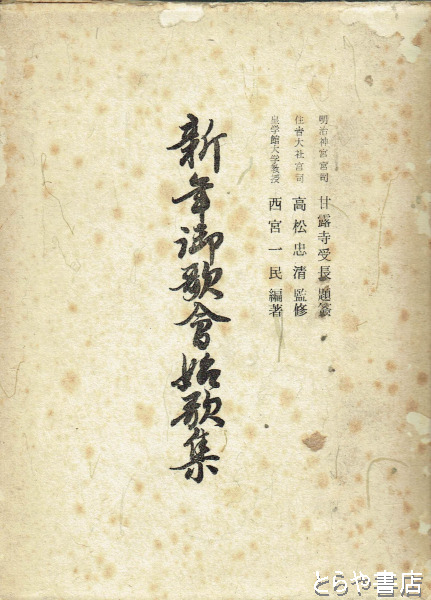 明治神宮宮司 甘露寺受長題簽
住吉大社宮司 高松忠清監修
皇学館大学教授 西宮一民編著
新年御歌會始歌集
とらや書店